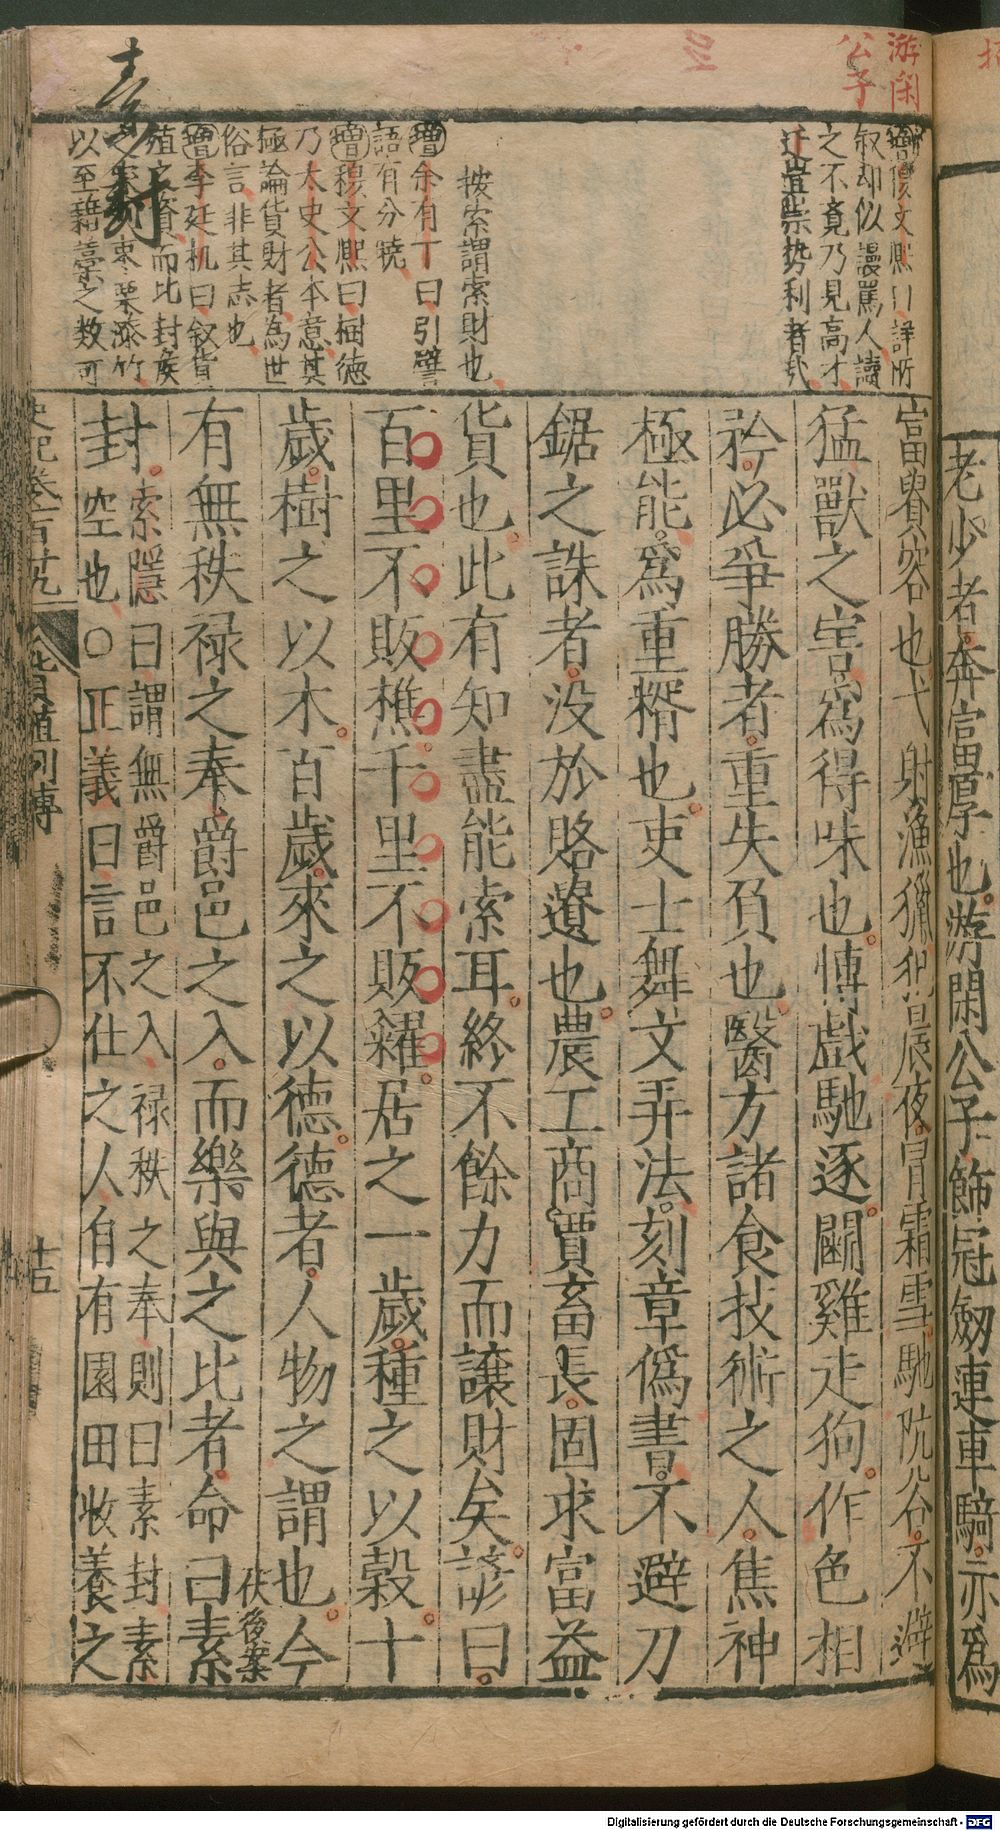 老少者奔富厚也游閑公子飾冠劒連車騎亦爲
游閑
公子
增陳文
之不竟乃見高才
迂豈崇勢利者哉
按索謂索財也
增余有丁曰引譬
語有分曉
增穆文熈曰樹德
乃太史公本意其
極論貨財者爲世
俗言非其志也
增李廷机曰叙貨
殖之資而比封矦
以至藉藁之数可
富貴容也弋射漁獵犯晨夜冐霜雪馳阬谷不避
猛獸之害爲得味也愽戲馳逐鬭雞走狗作色相
矜必爭勝者重失負也醫方諸食技術之人焦神
極能爲重糈也吏士舞文弄法刻章僞書不避刀
鋸之誅者没於賂遺也農工商賈畜長固求富益
貨也此有知盡能索耳終不餘力而讓財矣諺曰
百里不販樵千里不販糴居之一歲種之以穀十
歲樹之以木百歲來之以德德者人物之謂也今
有無秩禄之奉爵邑之入而樂與之比者命曰素
茯後案
封索隱曰謂無爵邑之入禄秩之奉則曰素封素
空也○正義曰言不仕之人自有園田收養之
史記卷百廿九
貨殖列傳
十五
Digitalisierung gefördert durch die Deutsche Forschungsgemeinschaft - DFG